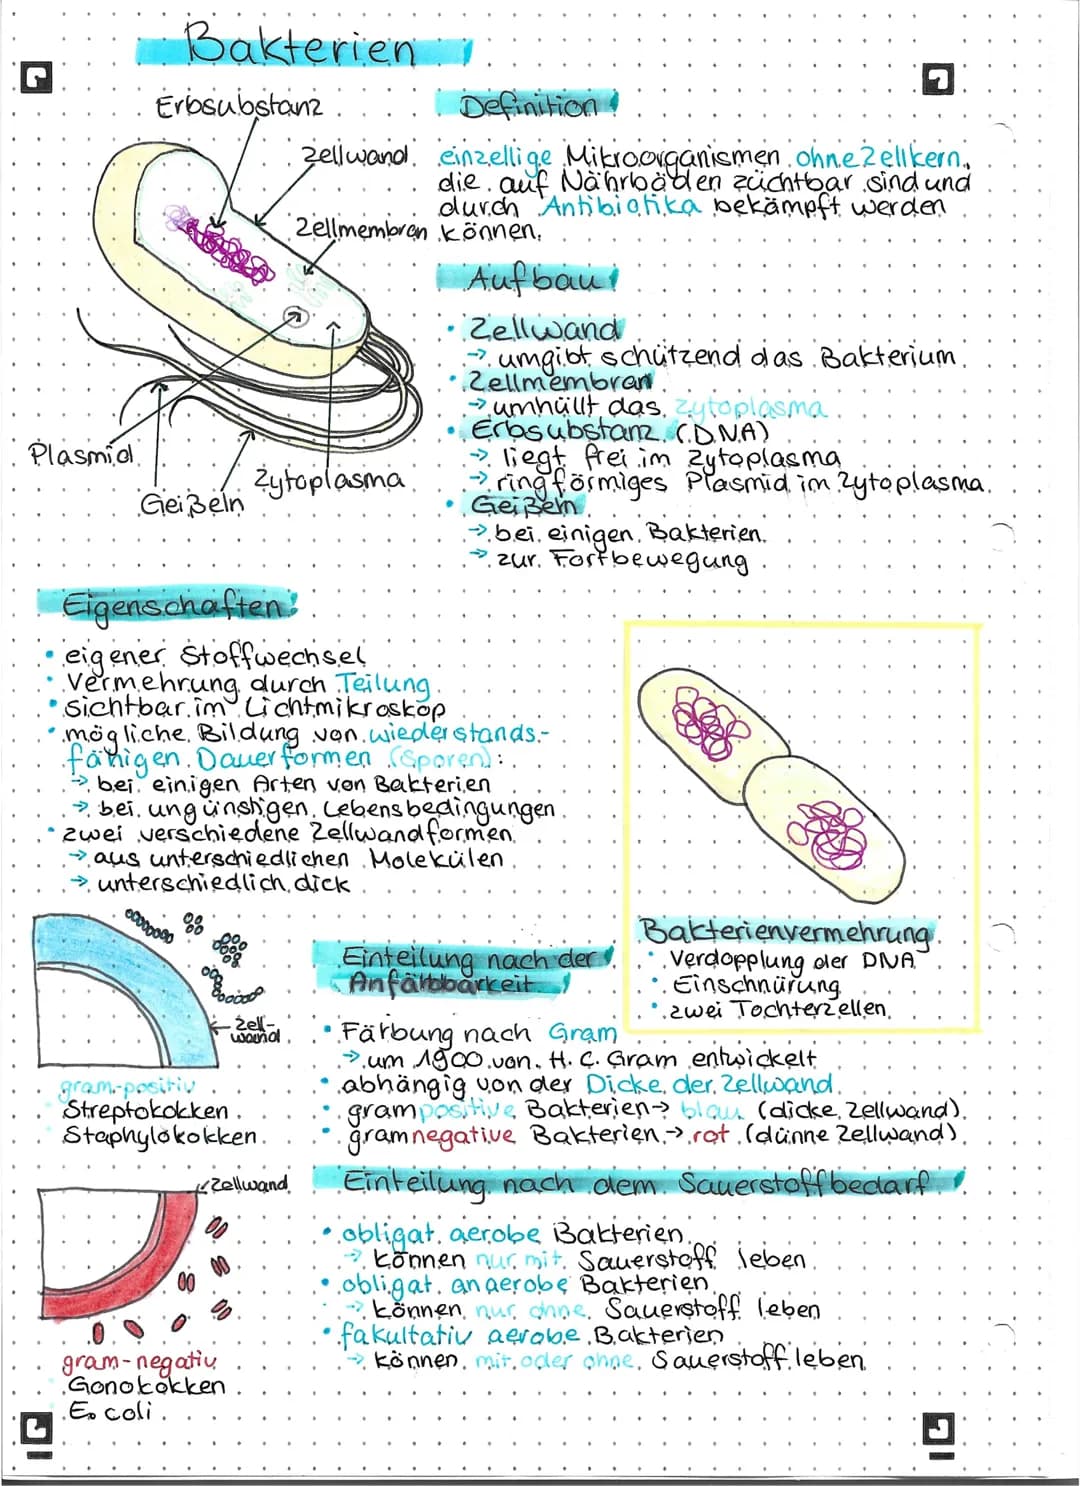 Bakterien
Erbsubstanz
Zellwand
Zellmembran
Plasmid
Geißeln
Zytoplasma
Definition:
einzellige Mikroorganismen ohne Zellkern,
die auf Nährböden züchtbar sind und
durch Antibiotika bekämpft werden
können.
Aufbau:
• Zellwand
→ umgibt schützend das Bakterium
• Zellmembran
→ umhüllt das Zytoplasma
• Erbsubstanz (DNA)
→ liegt frei im Zytoplasma
→ ringförmiges Plasmid im Zytoplasma
• Geißeln
→ bei einigen Bakterien
→ zur Fortbewegung
Eigenschaften:
• eigener Stoffwechsel
• Vermehrung durch Teilung
• sichtbar im Lichtmikroskop
• mögliche Bildung von wiederstands-
fähigen Dauerformen (Sporen):
→ bei einigen Arten von Bakterien
→ bei ungünstigen Lebensbedingungen
• zwei verschiedene Zellwandformen
→ aus unterschiedlichen Molekülen
→ unterschiedlich dick
Bakterienvermehrung
• Verdopplung der DNA
• Einschnürung
• zwei Tochterzellen
Zell-
wand
gram-positiv
• Streptokokken
• Staphylokokken
Einteilung nach der
Anfärbbarkeit
• Färbung nach Gram
→ um 1900 von H. C. Gram entwickelt
• abhängig von der Dicke der Zellwand
• grampositive Bakterien → blau (dicke Zellwand)
• gramnegative Bakterien → rot (dünne Zellwand)
Zellwand
gram-negativ
• Gonokokken
• E. coli
Einteilung nach dem Sauerstoffbedarf
• obligat aerobe Bakterien
→ können nur mit Sauerstoff leben
• obligat anaerobe Bakterien
→ können nur ohne Sauerstoff leben
• fakultativ aerobe Bakterien
→ können mit oder ohne Sauerstoff leben